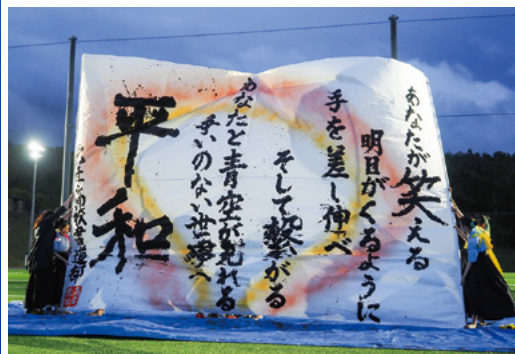 あなたが笑える
明日がくるように
手を差し伸べ
そして繋がる
あなたと青空が見れる
争いのない世界へ
平和